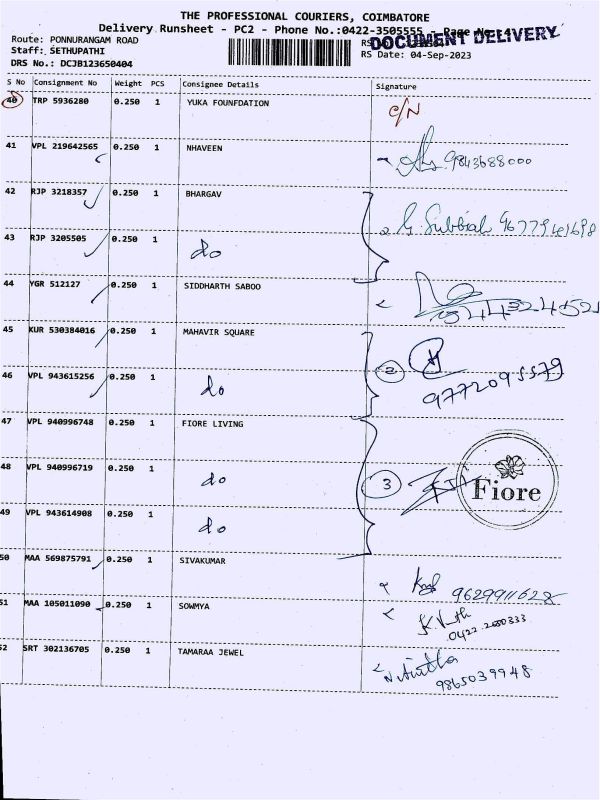 THE PROFESSIONAL COURIERS, COIMBATORE
Delivery Runsheet - PC2 - Phone No.:0422-3505555 - Page No.:4
Route: PONNURANGAM ROAD
DOCUMENT DELIVERY
Staff: SETHUPATHI
RS Date: 04-Sep-2023
DRS No.: DCJB123650404
S No Consignment No Weight PCS Consignee Details Signature
40 TRP 5936280 0.250 1 YUKA FOUNFDATION C/N
41 VPL 219642565 0.250 1 NHAVEEN 9843688000
42 RJP 3218357 0.250 1 BHARGAV
G. Subbiah 9677941698
43 RJP 3205505 0.250 1 do
44 YGR 512127 0.250 1 SIDDHARTH SABOO
45 KUR 530384016 0.250 1 MAHAVIR SQUARE
2
46 VPL 943615256 0.250 1 do 9772095579
47 VPL 940996748 0.250 1 FIORE LIVING
48 VPL 940996719 0.250 1 do 3 Fiore
49 VPL 943614908 0.250 1 do
50 MAA 569875791 0.250 1 SIVAKUMAR 9629911628
51 MAA 105011090 0.250 1 SOWMYA
0422-2600333
52 SRT 302136705 0.250 1 TAMARAA JEWEL
9865039948